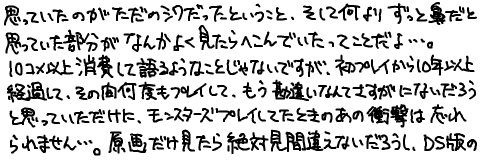 思っていたのがただのシワだったということ、そして何よりずっと鼻だと
思っていた部分がなんかよく見たらへこんでいたってことだよ…。
10コメ以上消費して語るようなことじゃないですが、初プレイから10年以上
経過して、その間何度もプレイして、もう勘違いなんてさすがにないだろう
と思っていただけに、モンスターズプレイしてたときのあの衝撃は忘れ
られません…。原画だけ見たら絶対見間違えないだろうし、DS版の